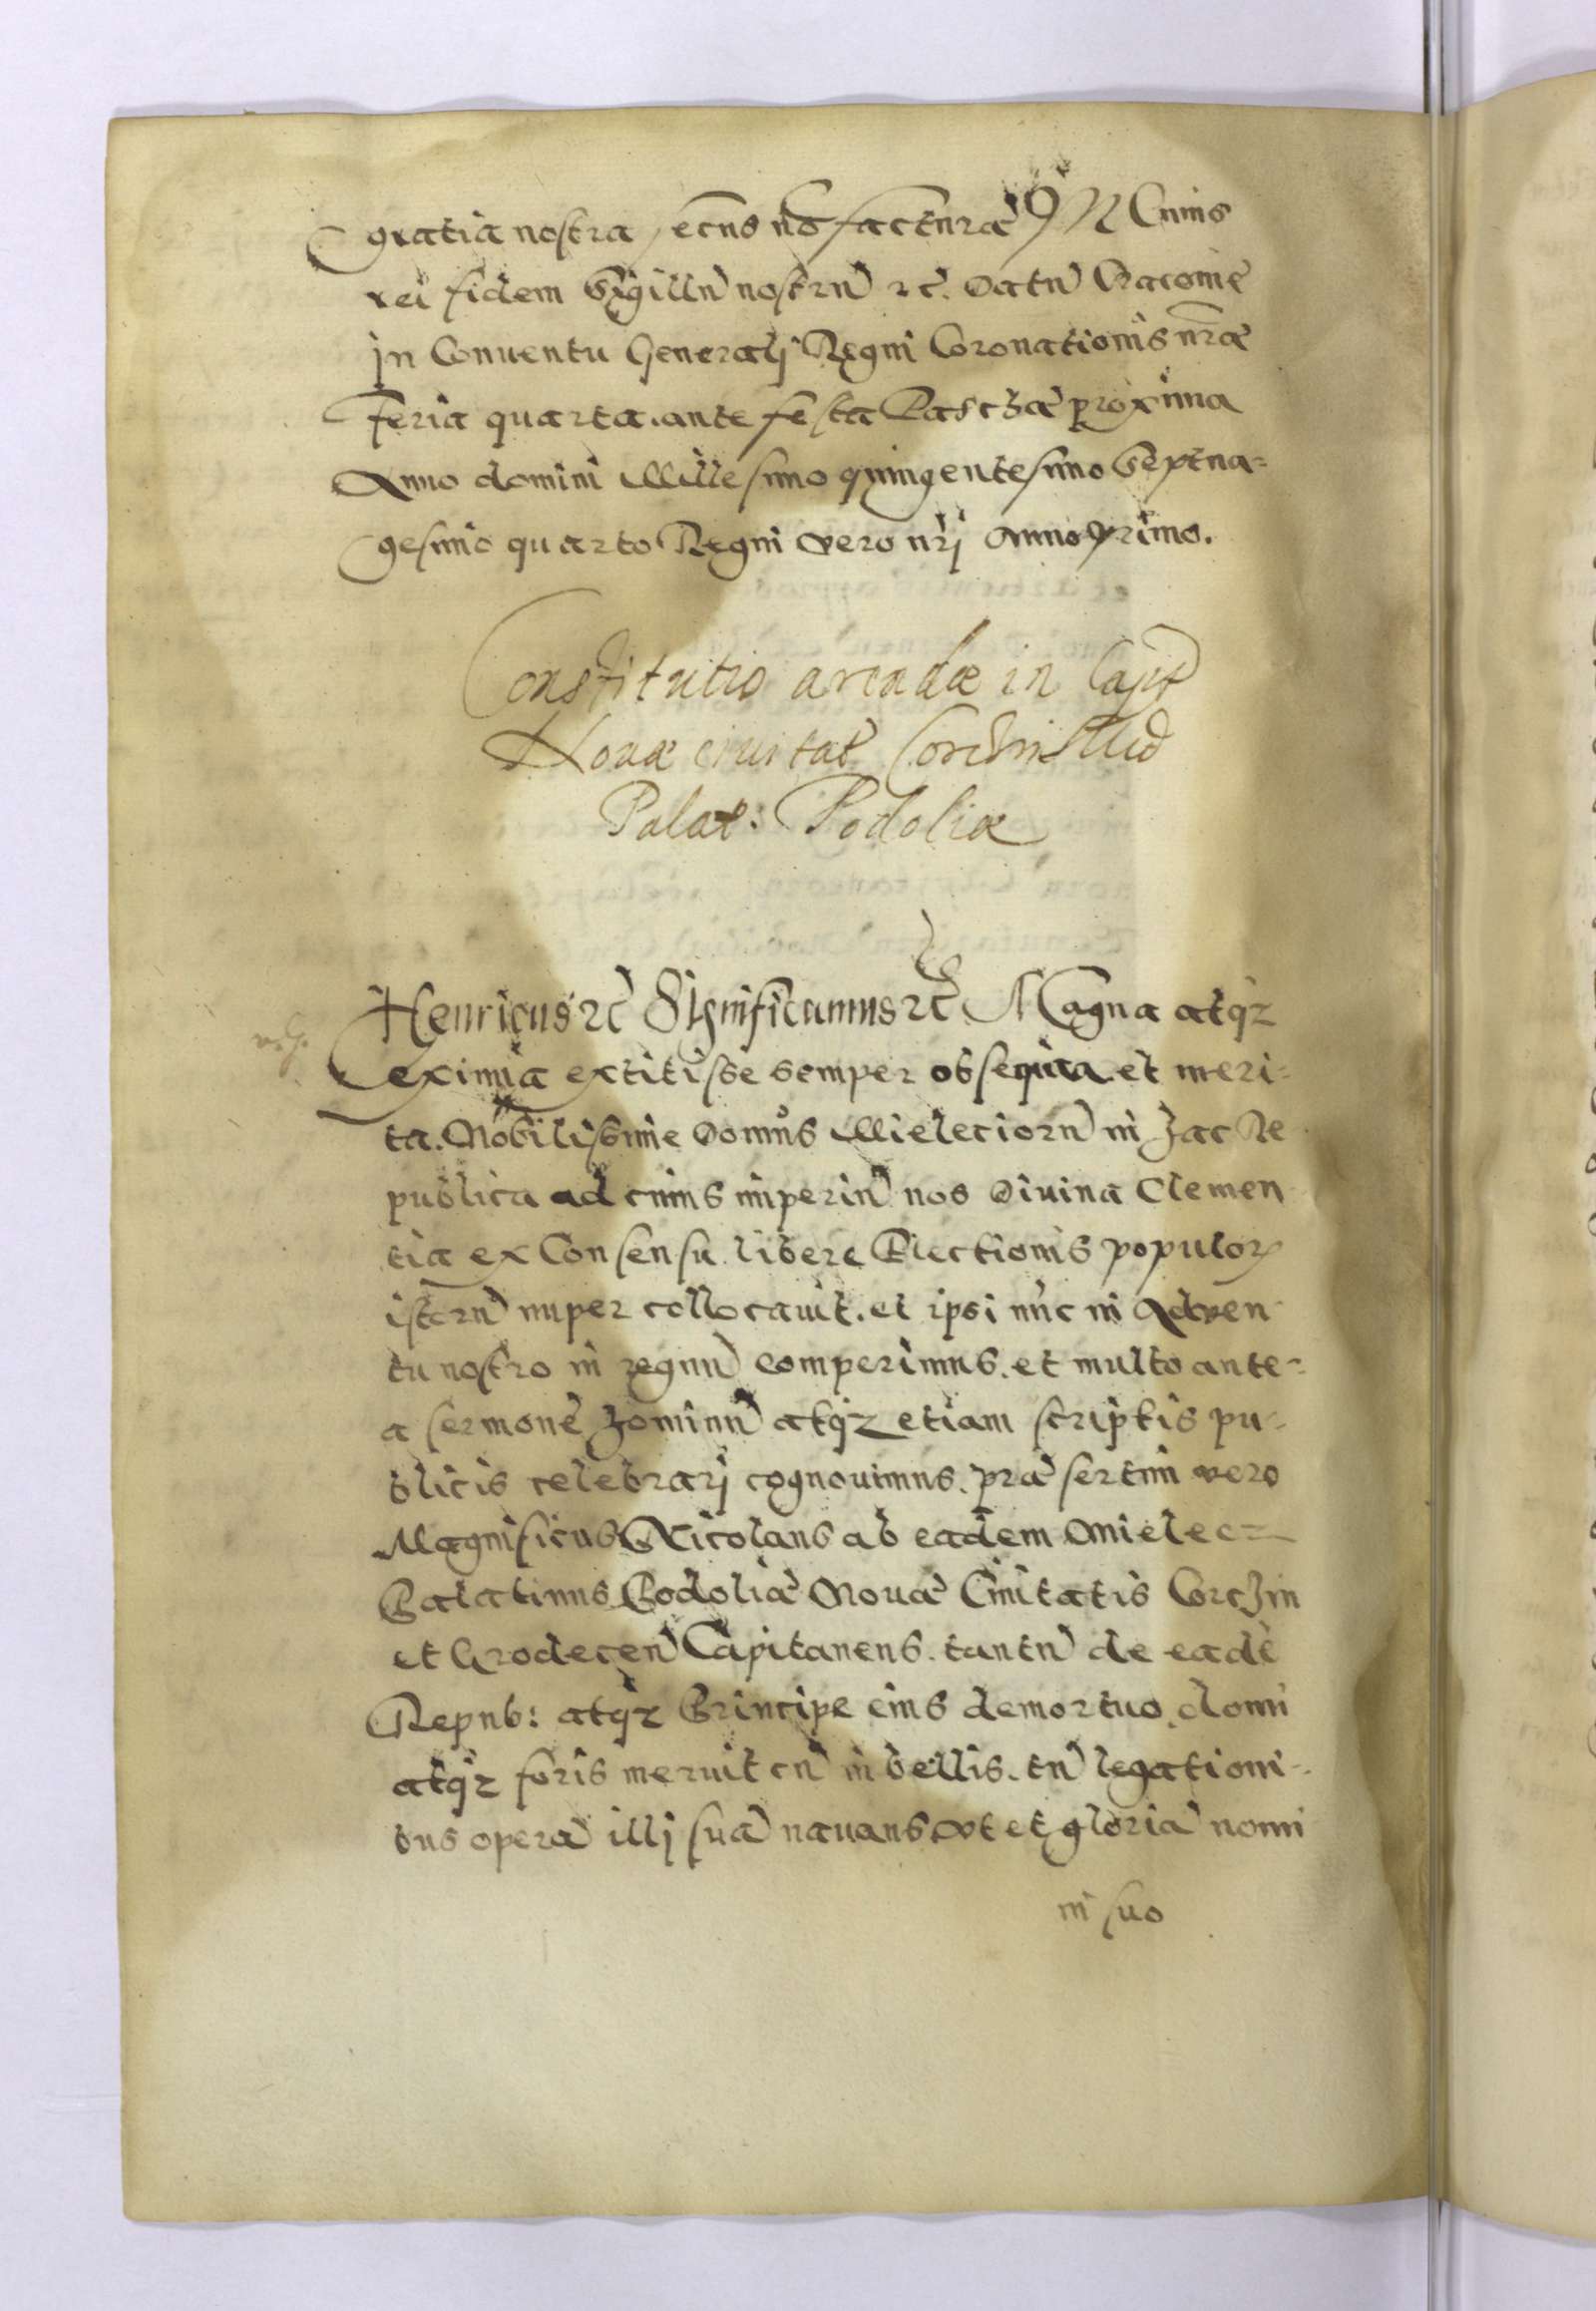 gratia nostra, secus nō facturā Cuius
rei fidem Sigillū nostrū ꝛc̄. Datū Cracouiæ
in Conuentu Generalj Regni Coronationis nr̄æ
Feria quarta ante festa Paschæ proxima
Anno domini Millesimo quingentesimo Septua=
gesimo quarto Regni vero nr̄j Anno primo.
Constitutio arendæ in Capit
Nouæ ciuitat Corchin Mfco
Palat: Podoliæ
Henricus ꝛc̄ Significamus ꝛc̄ Magna atq̄ꝫ
eximia extitisse semper obsequia et meri=
ta. Nobilissimę Domus Mieleciorū in hac Re
publica ad cuius imperiū nos Diuina Clemen
tia ex Consensu liberę Electionis populoꝝ
istorū nuper collocauit. et ipsi nūc in Aduen
tu nostro in regnū comperimus. et multo ante=
a sermone hominū atq̄ꝫ etiam scriptis pu=
blicis celebrarj cognouimus. præsertim vero
Magnificus Nicolaus ab eadem Mielec=
Palatinus Podoliæ Nouæ Ciuitatis Corchin
et Grodecen̄ Capitaneus. tantū de eadē
Repub: atq̄ꝫ Principe eius demortuo, domi
atq̄ꝫ foris meruit cū in bellis. tū legationi=
bus operā illj suā nauans vt et gloriā nomi
ni suo